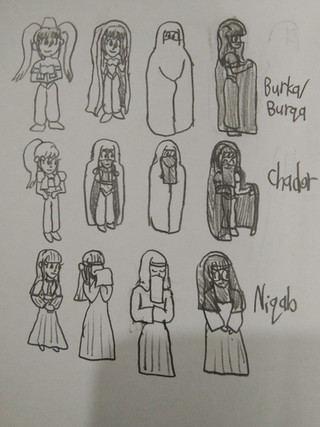 Burka/
Burqa
Chador
Niqab